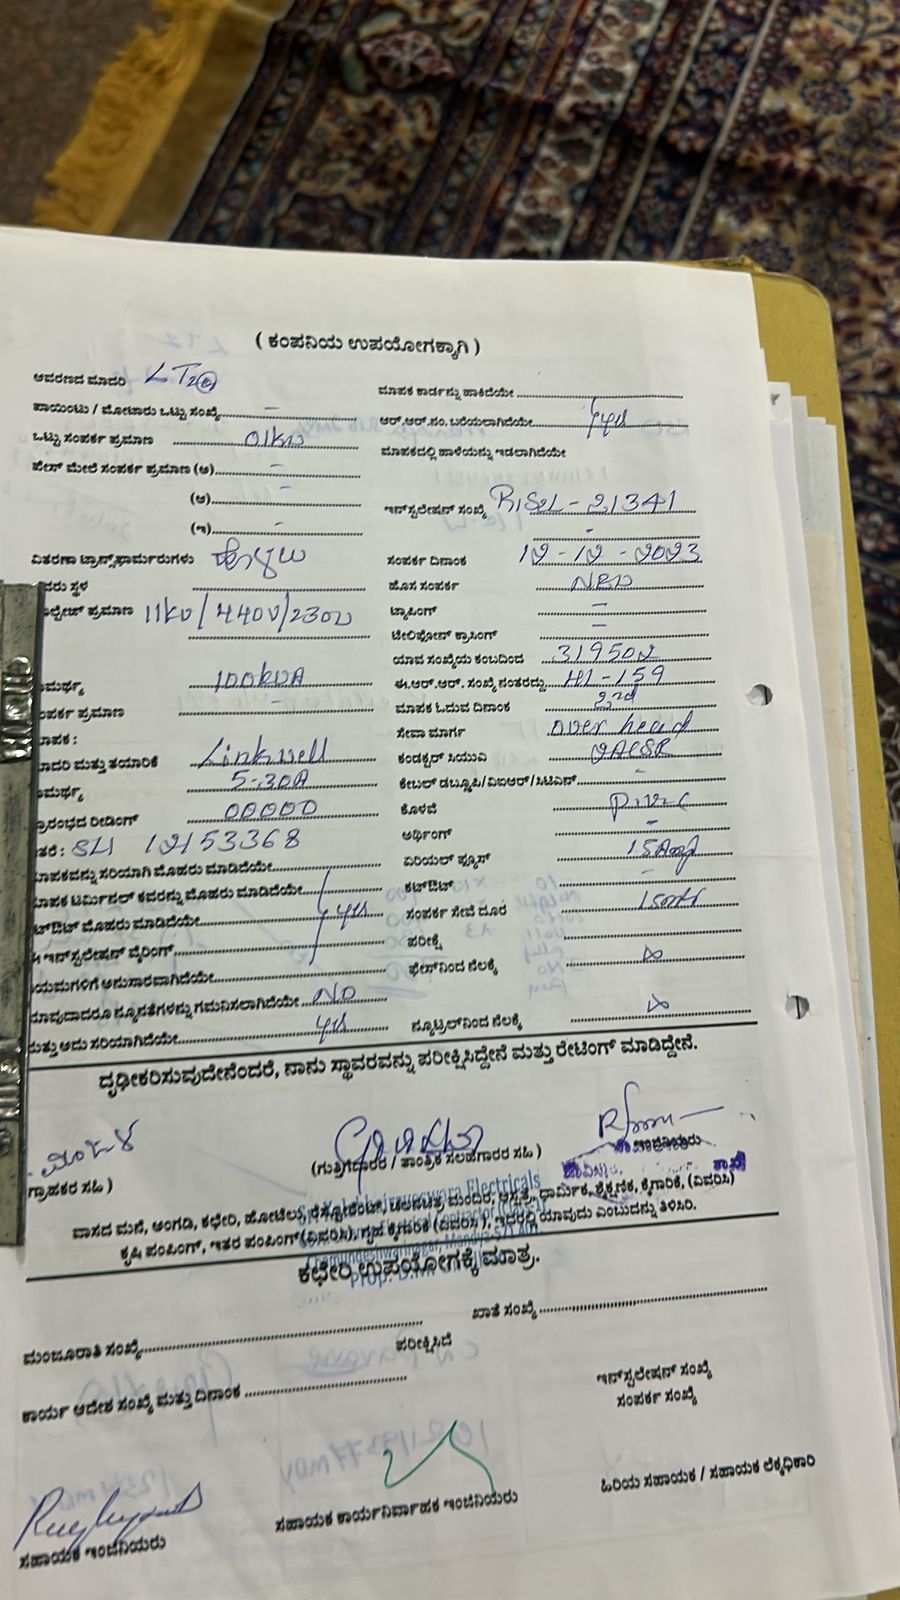 ( ಕಂಪನಿಯ ಉಪಯೋಗಕ್ಕಾಗಿ )
ಆವರಣದ ಮಾದರಿ LT2
ಮಾಪಕ ಕಾರ್ಡನ್ನು ಹಾಕಿದೆಯೇ
ಪಾಯಿಂಟು / ಮೋಟಾರು ಒಟ್ಟು ಸಂಖ್ಯೆ -
ಆರ್.ಆರ್.ನಂ. ಬರೆಯಲಾಗಿದೆಯೇ yes
ಒಟ್ಟು ಸಂಪರ್ಕ ಪ್ರಮಾಣ 01KW
ಮಾಪಕದಲ್ಲಿ ಹಾಳೆಯನ್ನು ಇಡಲಾಗಿದೆಯೇ
ಪೇಸ್ ಮೇಲೆ ಸಂಪರ್ಕ ಪ್ರಮಾಣ (ಅ) -
(ಆ) -
ಇನ್‌ಸ್ಟಲೇಷನ್ ಸಂಖ್ಯೆ
(ಇ) -
ವಿತರಣಾ ಟ್ರಾನ್ಸ್‌ಫಾರ್ಮರುಗಳು
ಸಂಪರ್ಕ ದಿನಾಂಕ 12-12-2023
ವರು ಸ್ಥಳ
ಹೊಸ ಸಂಪರ್ಕ NEW
ಲ್ಟೇಜ್ ಪ್ರಮಾಣ 11KV/440V/230V
ಟ್ಯಾಪಿಂಗ್ -
ಟೆಲಿಫೋನ್ ಕ್ರಾಸಿಂಗ್ -
ಯಾವ ಸಂಖ್ಯೆಯ ಕಂಬದಿಂದ
ಾಮರ್ಥ್ಯ 100KVA
ಈ.ಆರ್.ಆರ್. ಸಂಖ್ಯೆ ನಂತರದ್ದು H1-159
ಂಪರ್ಕ ಪ್ರಮಾಣ -
ಮಾಪಕ ಓದುವ ದಿನಾಂಕ
ಾಪಕ :
ಸೇವಾ ಮಾರ್ಗ over head
ಾದರಿ ಮತ್ತು ತಯಾರಿಕೆ Linkwell
ಕಂಡಕ್ಟರ್ ಸಿಯುಎ
ಾಮರ್ಥ್ಯ 5-30A
ಕೇಬಲ್ ಡಬ್ಲೂಪಿ/ವಿಐಆರ್/ಸಿಟಿಎಸ್ -
್ರಾರಂಭದ ರೀಡಿಂಗ್ 00000
ಕೊಳವೆ
ತರೆ : 12153368
ಅರ್ಥಿಂಗ್ -
ಾಪಕವನ್ನು ಸರಿಯಾಗಿ ಮೊಹರು ಮಾಡಿದೆಯೇ
ಏರಿಯಲ್ ಫ್ಯೂಸ್ 15Amp
ಾಪಕ ಟರ್ಮಿನಲ್ ಕವರನ್ನು ಮೊಹರು ಮಾಡಿದೆಯೇ
ಕಟ್‌ಔಟ್ -
ಟ್‌ಔಟ್ ಮೊಹರು ಮಾಡಿದೆಯೇ yes
ಸಂಪರ್ಕ ಸೇವೆ ದೂರ 15mtr
ಇನ್‌ಸ್ಟಲೇಷನ್ ವೈರಿಂಗ್
ಪರೀಕ್ಷೆ
ಯಮಗಳಿಗೆ ಅನುಸಾರವಾಗಿದೆಯೇ
ಫೇಸ್‌ನಿಂದ ನೆಲಕ್ಕೆ ∞
ಾವುದಾದರೂ ನ್ಯೂನತೆಗಳನ್ನು ಗಮನಿಸಲಾಗಿದೆಯೇ NO
ುತ್ತು ಅದು ಸರಿಯಾಗಿದೆಯೇ yes
ನ್ಯೂಟ್ರಲ್‌ನಿಂದ ನೆಲಕ್ಕೆ ∞
ದೃಢೀಕರಿಸುವುದೇನೆಂದರೆ, ನಾನು ಸ್ಥಾವರವನ್ನು ಪರೀಕ್ಷಿಸಿದ್ದೇನೆ ಮತ್ತು ರೇಟಿಂಗ್ ಮಾಡಿದ್ದೇನೆ.
ಗ್ರಾಹಕರ ಸಹಿ )
(ಗುತ್ತಿಗೆದಾರರ / ತಾಂತ್ರಿಕ ಸಲಹಗಾರರ ಸಹಿ )
ಇಂಜಿನಿಯರು
Sri Kalabhairaveswara Electricals
ವಾಸದ ಮನೆ, ಅಂಗಡಿ, ಕಛೇರಿ, ಹೋಟೆಲು, ರೆಸ್ಟೋರೆಂಟ್, ಚಲನಚಿತ್ರ ಮಂದಿರ, ಆಸ್ಪತ್ರೆ, ಧಾರ್ಮಿಕ, ಶೈಕ್ಷಣಿಕ, ಕೈಗಾರಿಕೆ, (ವಿವರಿಸಿ)
ಕೃಷಿ ಪಂಪಿಂಗ್, ಇತರ ಪಂಪಿಂಗ್(ವಿವರಿಸಿ), ಗೃಹ ಕೈಗಾರಿಕೆ (ವಿವರಿಸಿ ), ಇದರಲ್ಲಿ ಯಾವುದು ಎಂಬುದನ್ನು ತಿಳಿಸಿರಿ.
ಕಛೇರಿ ಉಪಯೋಗಕ್ಕೆ ಮಾತ್ರ.
ಮಂಜೂರಾತಿ ಸಂಖ್ಯೆ
ಖಾತೆ ಸಂಖ್ಯೆ
ಪರೀಕ್ಷಿಸಿದೆ
ಕಾರ್ಯ ಆದೇಶ ಸಂಖ್ಯೆ ಮತ್ತು ದಿನಾಂಕ
ಇನ್‌ಸ್ಟಲೇಷನ್ ಸಂಖ್ಯೆ
ಸಂಪರ್ಕ ಸಂಖ್ಯೆ
ಸಹಾಯಕ ಇಂಜಿನಿಯರು
ಸಹಾಯಕ ಕಾರ್ಯನಿರ್ವಾಹಕ ಇಂಜಿನಿಯರು
ಹಿರಿಯ ಸಹಾಯಕ / ಸಹಾಯಕ ಲೆಕ್ಕಧಿಕಾರಿ